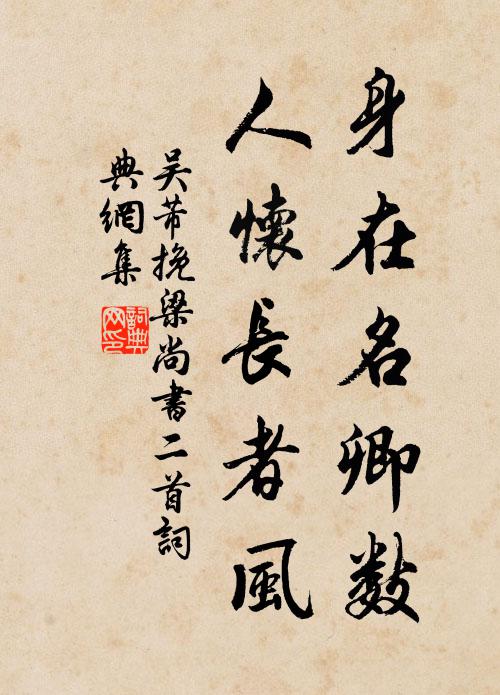 身在名卿數
人懷長者風
吴芾挽梁尚書二首詞
典網集
詞典網印